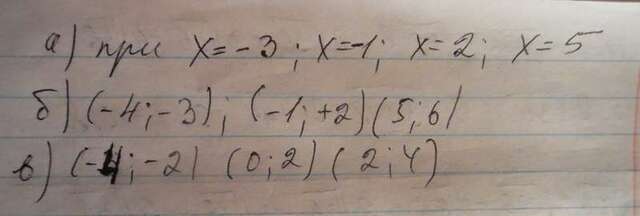 а) при x=-3; x=-1; x=2; x=5
б) (-4;-3); (-1;+2) (5;6)
в) (-4;-2) (0;2) (2;4)